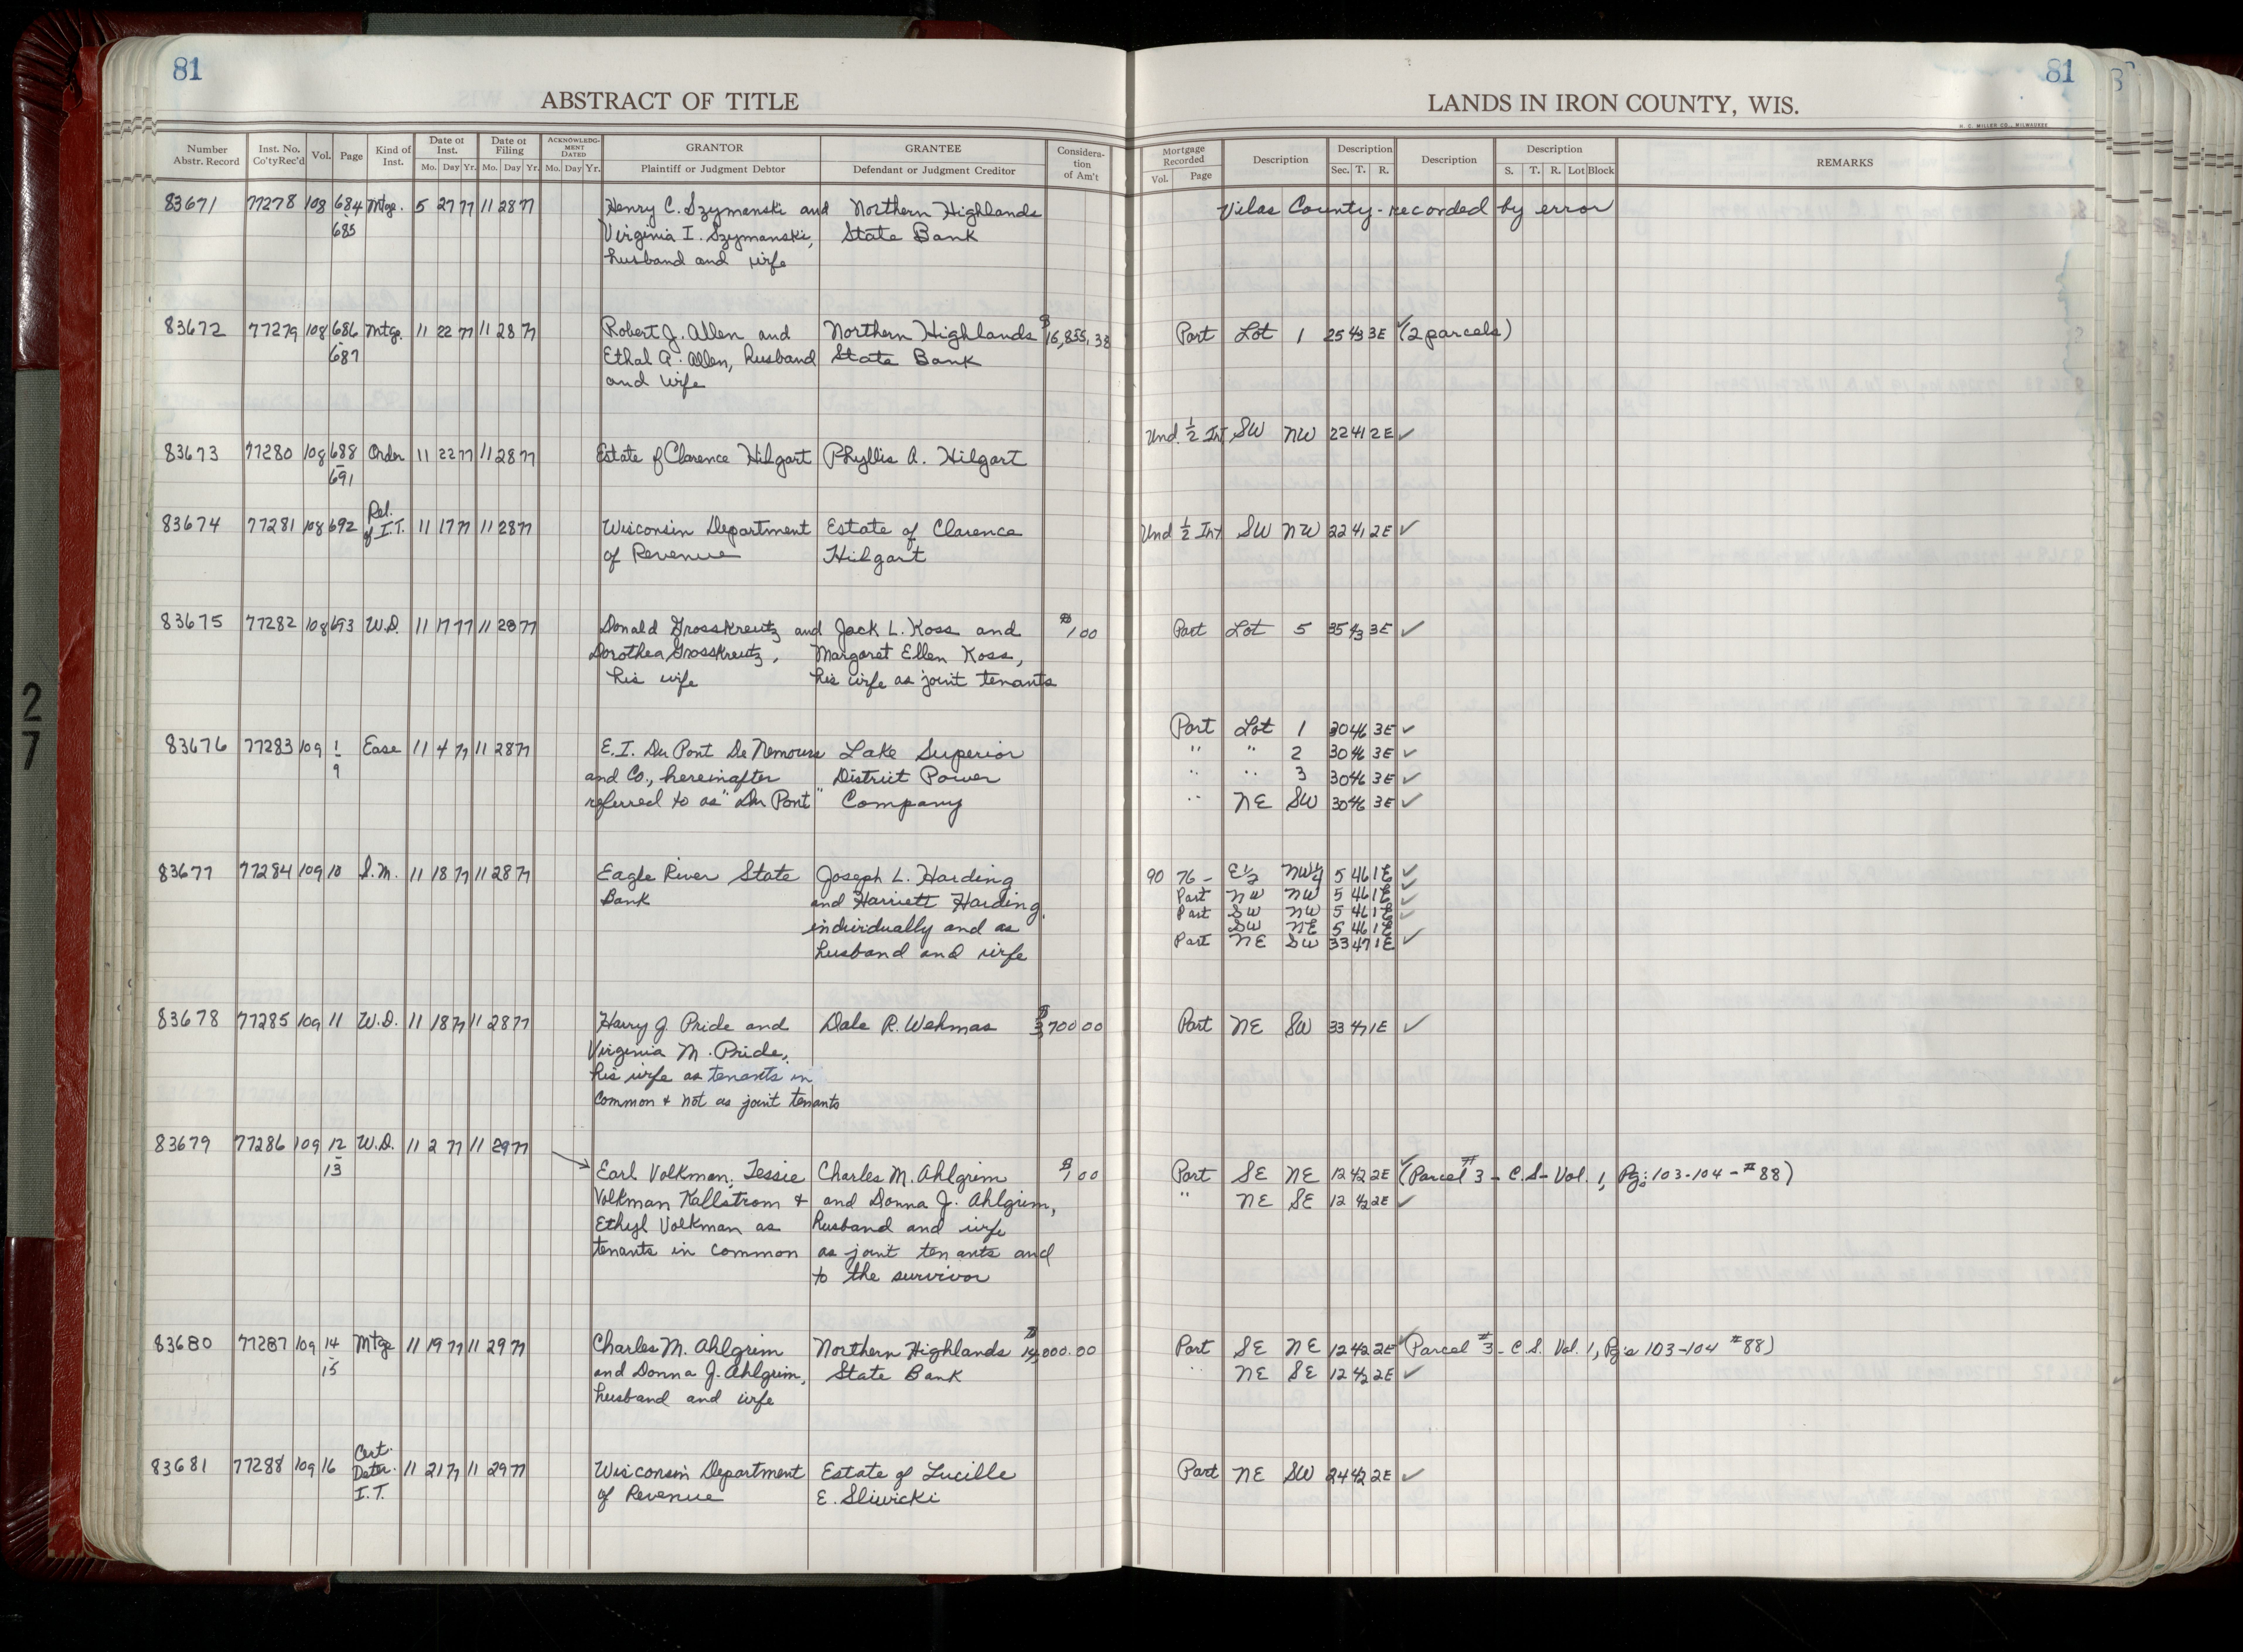 81
81
ABSTRACT OF TITLE
LANDS IN IRON COUNTY, WIS.
H. C. MILLER CO., MILWAUKEE
Number Abstr. Record | Inst. No. Co'ty Rec'd | Vol. | Page | Kind of Inst. | Date of Inst. Mo. Day Yr. | Date of Filing Mo. Day Yr. | ACKNOWLEDGMENT DATED Mo. Day Yr. | GRANTOR Plaintiff or Judgment Debtor | GRANTEE Defendant or Judgment Creditor | Consideration of Am't
Mortgage Recorded Vol. Page | Description | Description Sec. T. R. | Description | Description S. T. R. Lot Block | REMARKS
83671 77278 108 684 Mtge. 5 27 77 11 28 77 Henry C. Szymanski and Northern Highlands Vilas County - recorded by error
685 Virginia I. Szymanski, State Bank
husband and wife
83672 77279 108 686 Mtge. 11 22 77 11 28 77 Robert J. Allen and Northern Highlands $16,855.38 Part Lot 1 25 43 3E ✓ (2 parcels)
687 Ethal A. Allen, husband State Bank
and wife
Und. 1/2 Int SW NW 22 41 2E ✓
83673 77280 108 688 Order 11 22 77 11 28 77 Estate of Clarence Hilgart Phyllis A. Hilgart
691
Rel.
83674 77281 108 692 of I.T. 11 17 77 11 28 77 Wisconsin Department Estate of Clarence Und 1/2 Int SW NW 22 41 2E ✓
of Revenue Hilgart
83675 77282 108 693 W.D. 11 17 77 11 28 77 Donald Grosskreutz and Jack L. Koss and $1.00 Part Lot 5 35 43 3E ✓
Dorothea Grosskreutz, Margaret Ellen Koss,
his wife his wife as joint tenants
Part Lot 1 30 46 3E ✓
83676 77283 109 1 Ease 11 4 77 11 28 77 E.I. Du Pont De Nemours Lake Superior " " 2 30 46 3E ✓
9 and Co., hereinafter District Power " " 3 30 46 3E ✓
referred to as "Du Pont" Company " NE SW 30 46 3E ✓
83677 77284 109 10 S.M. 11 18 77 11 28 77 Eagle River State Joseph L. Harding 90 76 - E 1/2 NW 1/4 5 46 1E ✓
Bank and Harriett Harding, Part NW NW 5 46 1E ✓
Part SW NW 5 46 1E ✓
individually and as SW NE 5 46 1E ✓
husband and wife Part NE SW 33 47 1E ✓
83678 77285 109 11 W.D. 11 18 77 11 28 77 Harry J. Pride and Dale R. Wehmas $3,700.00 Part NE SW 33 47 1E ✓
Virginia M. Pride,
his wife as tenants in
common & not as joint tenants
83679 77286 109 12 W.D. 11 2 77 11 29 77
13 Earl Volkman, Tessie Charles M. Ahlgrim $1.00 Part SE NE 12 42 2E ✓ (Parcel #3 - C.S - Vol. 1, Pg: 103-104 - #88)
Volkman Kallstrom & and Donna J. Ahlgrim, " NE SE 12 42 2E ✓
Ethyl Volkman as husband and wife
tenants in common as joint tenants and
to the survivor
83680 77287 109 14 Mtge 11 19 77 11 29 77 Charles M. Ahlgrim Northern Highlands 000.00 Part SE NE 12 42 2E ✓ (Parcel #3 - C.S. Vol. 1, Pg's 103-104 #88)
15 and Donna J. Ahlgrim, State Bank " NE SE 12 42 2E ✓
husband and wife
Cert.
83681 77288 109 16 Deter. 11 21 77 11 29 77 Wisconsin Department Estate of Lucille Part NE SW 24 42 2E ✓
I.T. of Revenue E. Sliwicki
27